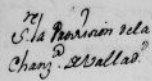 S.re la Provision dela
Chanz.ª de Vallad.d